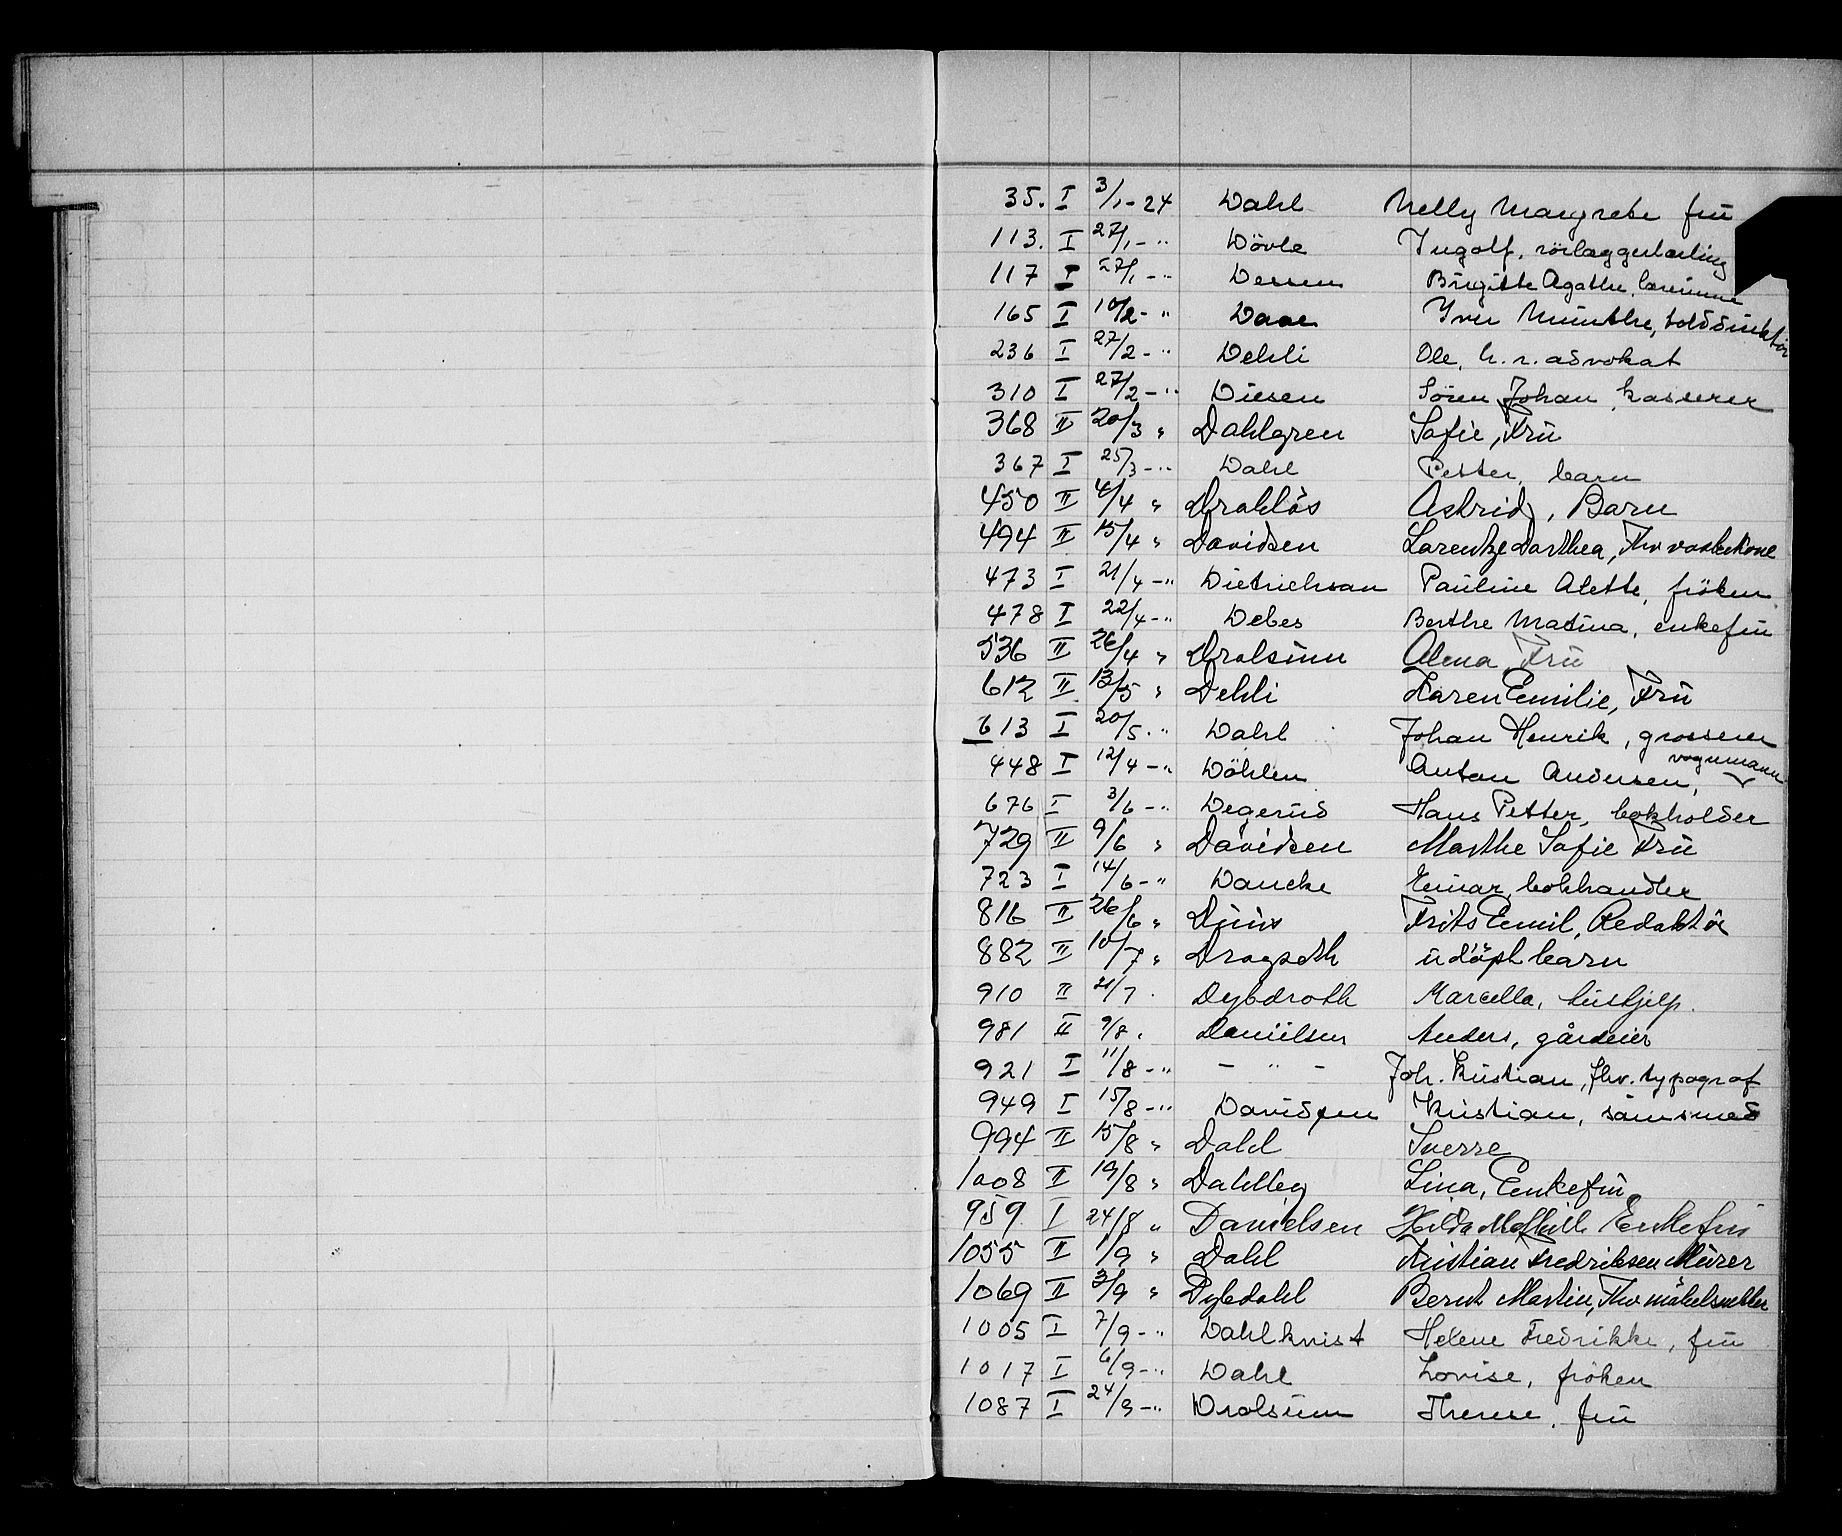 35. I 3/1-24 Dahl Nelly Margrete frü
113. I 27/1-" Dövle Ingolf, rörlæggerlærling
117 I 27/1-" Dessen Birgitte Agathe, lærerinne
165 I 10/2-" Daae Iver Munthe, tolddirektör
236 I 27/2-" Dehli Ole, h.r. advokat
310 I 27/2-" Diesen Sören Johan, kasserer
368 II 20/3 " Dahlgren Sofie, Frü
367 I 25/3-" Dahl Petter, barn
450 II 4/4 " Drabløs Astrid, Barn
494 II 15/4 " Davidsen Larentze Dorthea, Fhv vaskekone
473 I 21/4-" Dietrichson Pauline Alette, fröken
478 I 22/4-" Debes Berthe Matina, enkefrü
536 II 26/4 " Drolsum Alena, Frü
612 II 13/5 " Dehli Karen Emilie, Frü
613 I 20/5-" Dahl Johan Henrik, grosserer
448 I 12/4-" Döhlen Anton Andersen, vognmann
676 I 3/6-" Degerud Hans Petter, bokholder
729 II 9/6 " Davidsen Marthe Sofie Frü
723 I 14/6-" Dancke Einar, bokhandler
816 II 26/6 " Duus Frits Emil, Redaktör
882 II 10/7 " Dragseth udöpt barn
910 II 21/7 . Dybdroth Marcella, hushjelp.
981 II 9/8 . Danielsen Anders, gårdeier
921 I 11/8-" - " - Joh. Kristian, fhv. typograf
949 I 15/8-" Davidsen Kristian, sömsmed
994 II 15/8 " Dahl Sverre
1008 II 19/8 " Dahlby Lina, Enkefrü
959 I 24/8 " Danielsen Hilda Mathilde Enkefrü
1055 II 1/9 " Dahl Kristian Fredriksen Mürer
1069 II 3/9 " Dybdahl Bernt Martin, Fhv møbelsnekker
1005 I 7/9-" Dahlkvist Helene Fredrikke, frü
1017 I 6/9-" Dahl Lovise, fröken
1087 I 24/9-" Drolsum Therese, frü